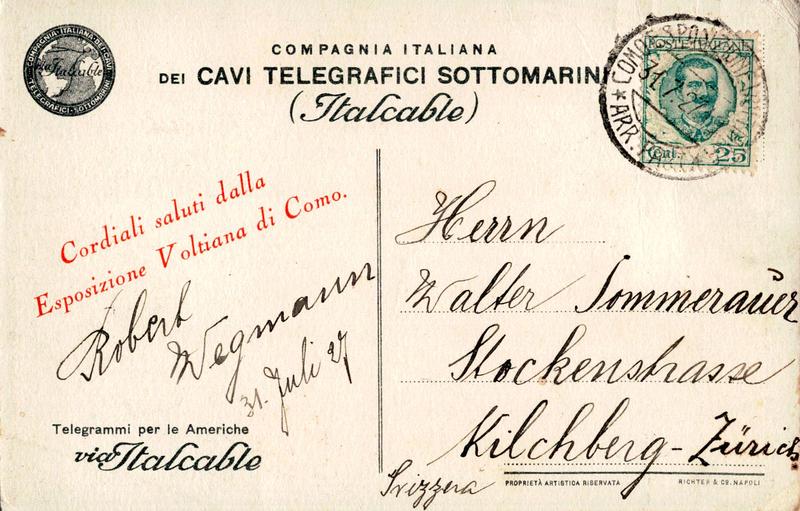 COMPAGNIA ITALIANA DEI CAVI
via Italcable
TELEGRAFICI SOTTOMARINI
COMPAGNIA ITALIANA
DEI CAVI TELEGRAFICI SOTTOMARINI
(Italcable)
POSTE ITALIANE
Cent. 25
Cordiali saluti dalla
Esposizione Voltiana di Como.
Robert
Wegmann
31. Juli 27
Telegrammi per le Americhe
via Italcable
Herrn
Walter Sommerauer
Stockenstrasse
Kilchberg-Zürich
Svizzera
PROPRIETÀ ARTISTICA RISERVATA
RICHTER & C° NAPOLI